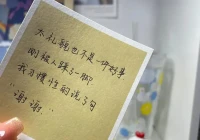 太礼貌也不是一件好事
刚被人踩了一脚
我习惯性的说了句
"谢谢"